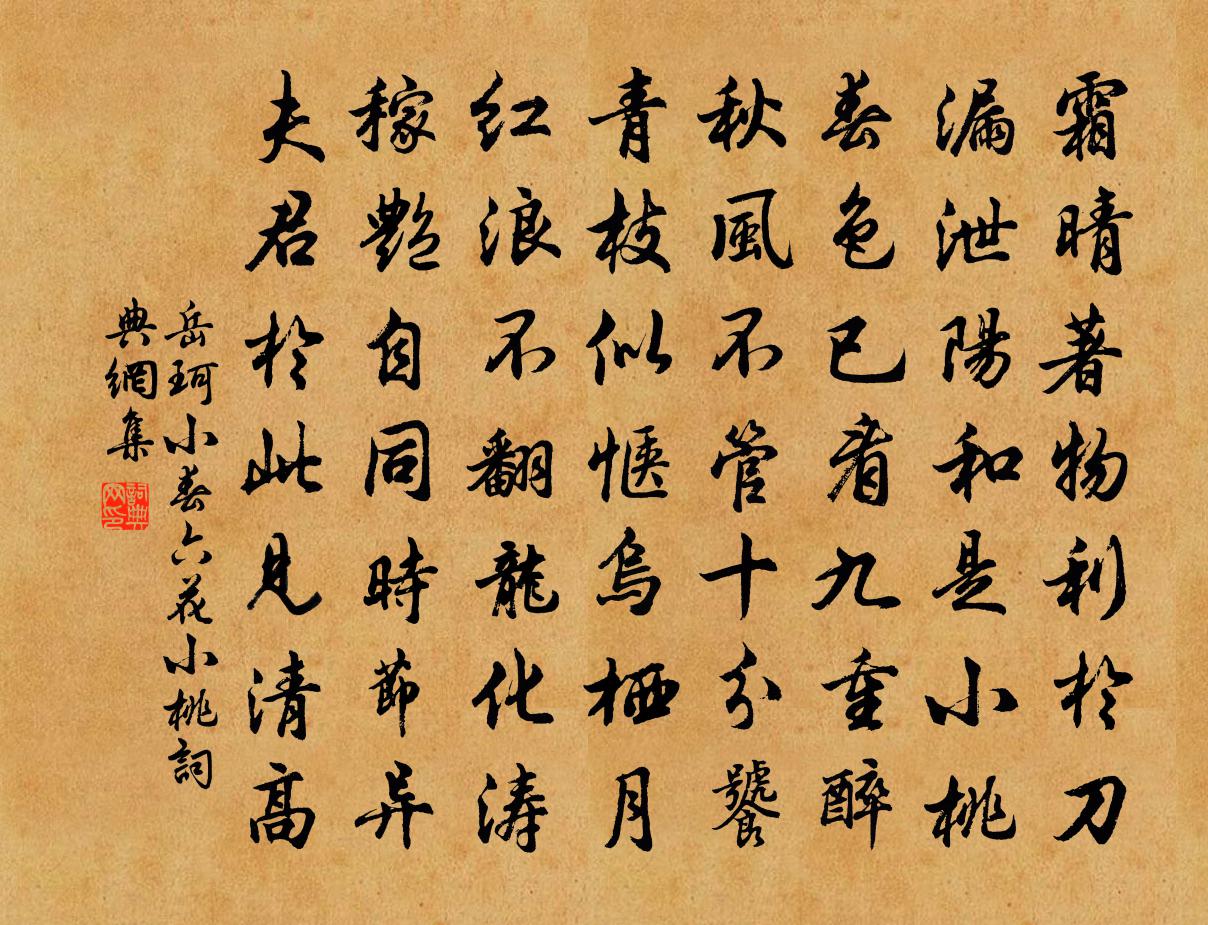 霜晴著物利於刀
漏泄陽和是小桃
春色已看九重醉
秋風不管十分饕
青枝似愜烏栖月
紅浪不翻龍化濤
穠艷自同時節异
夫君於此見清高
岳珂小春六花小桃詞
典網集
詞典網印